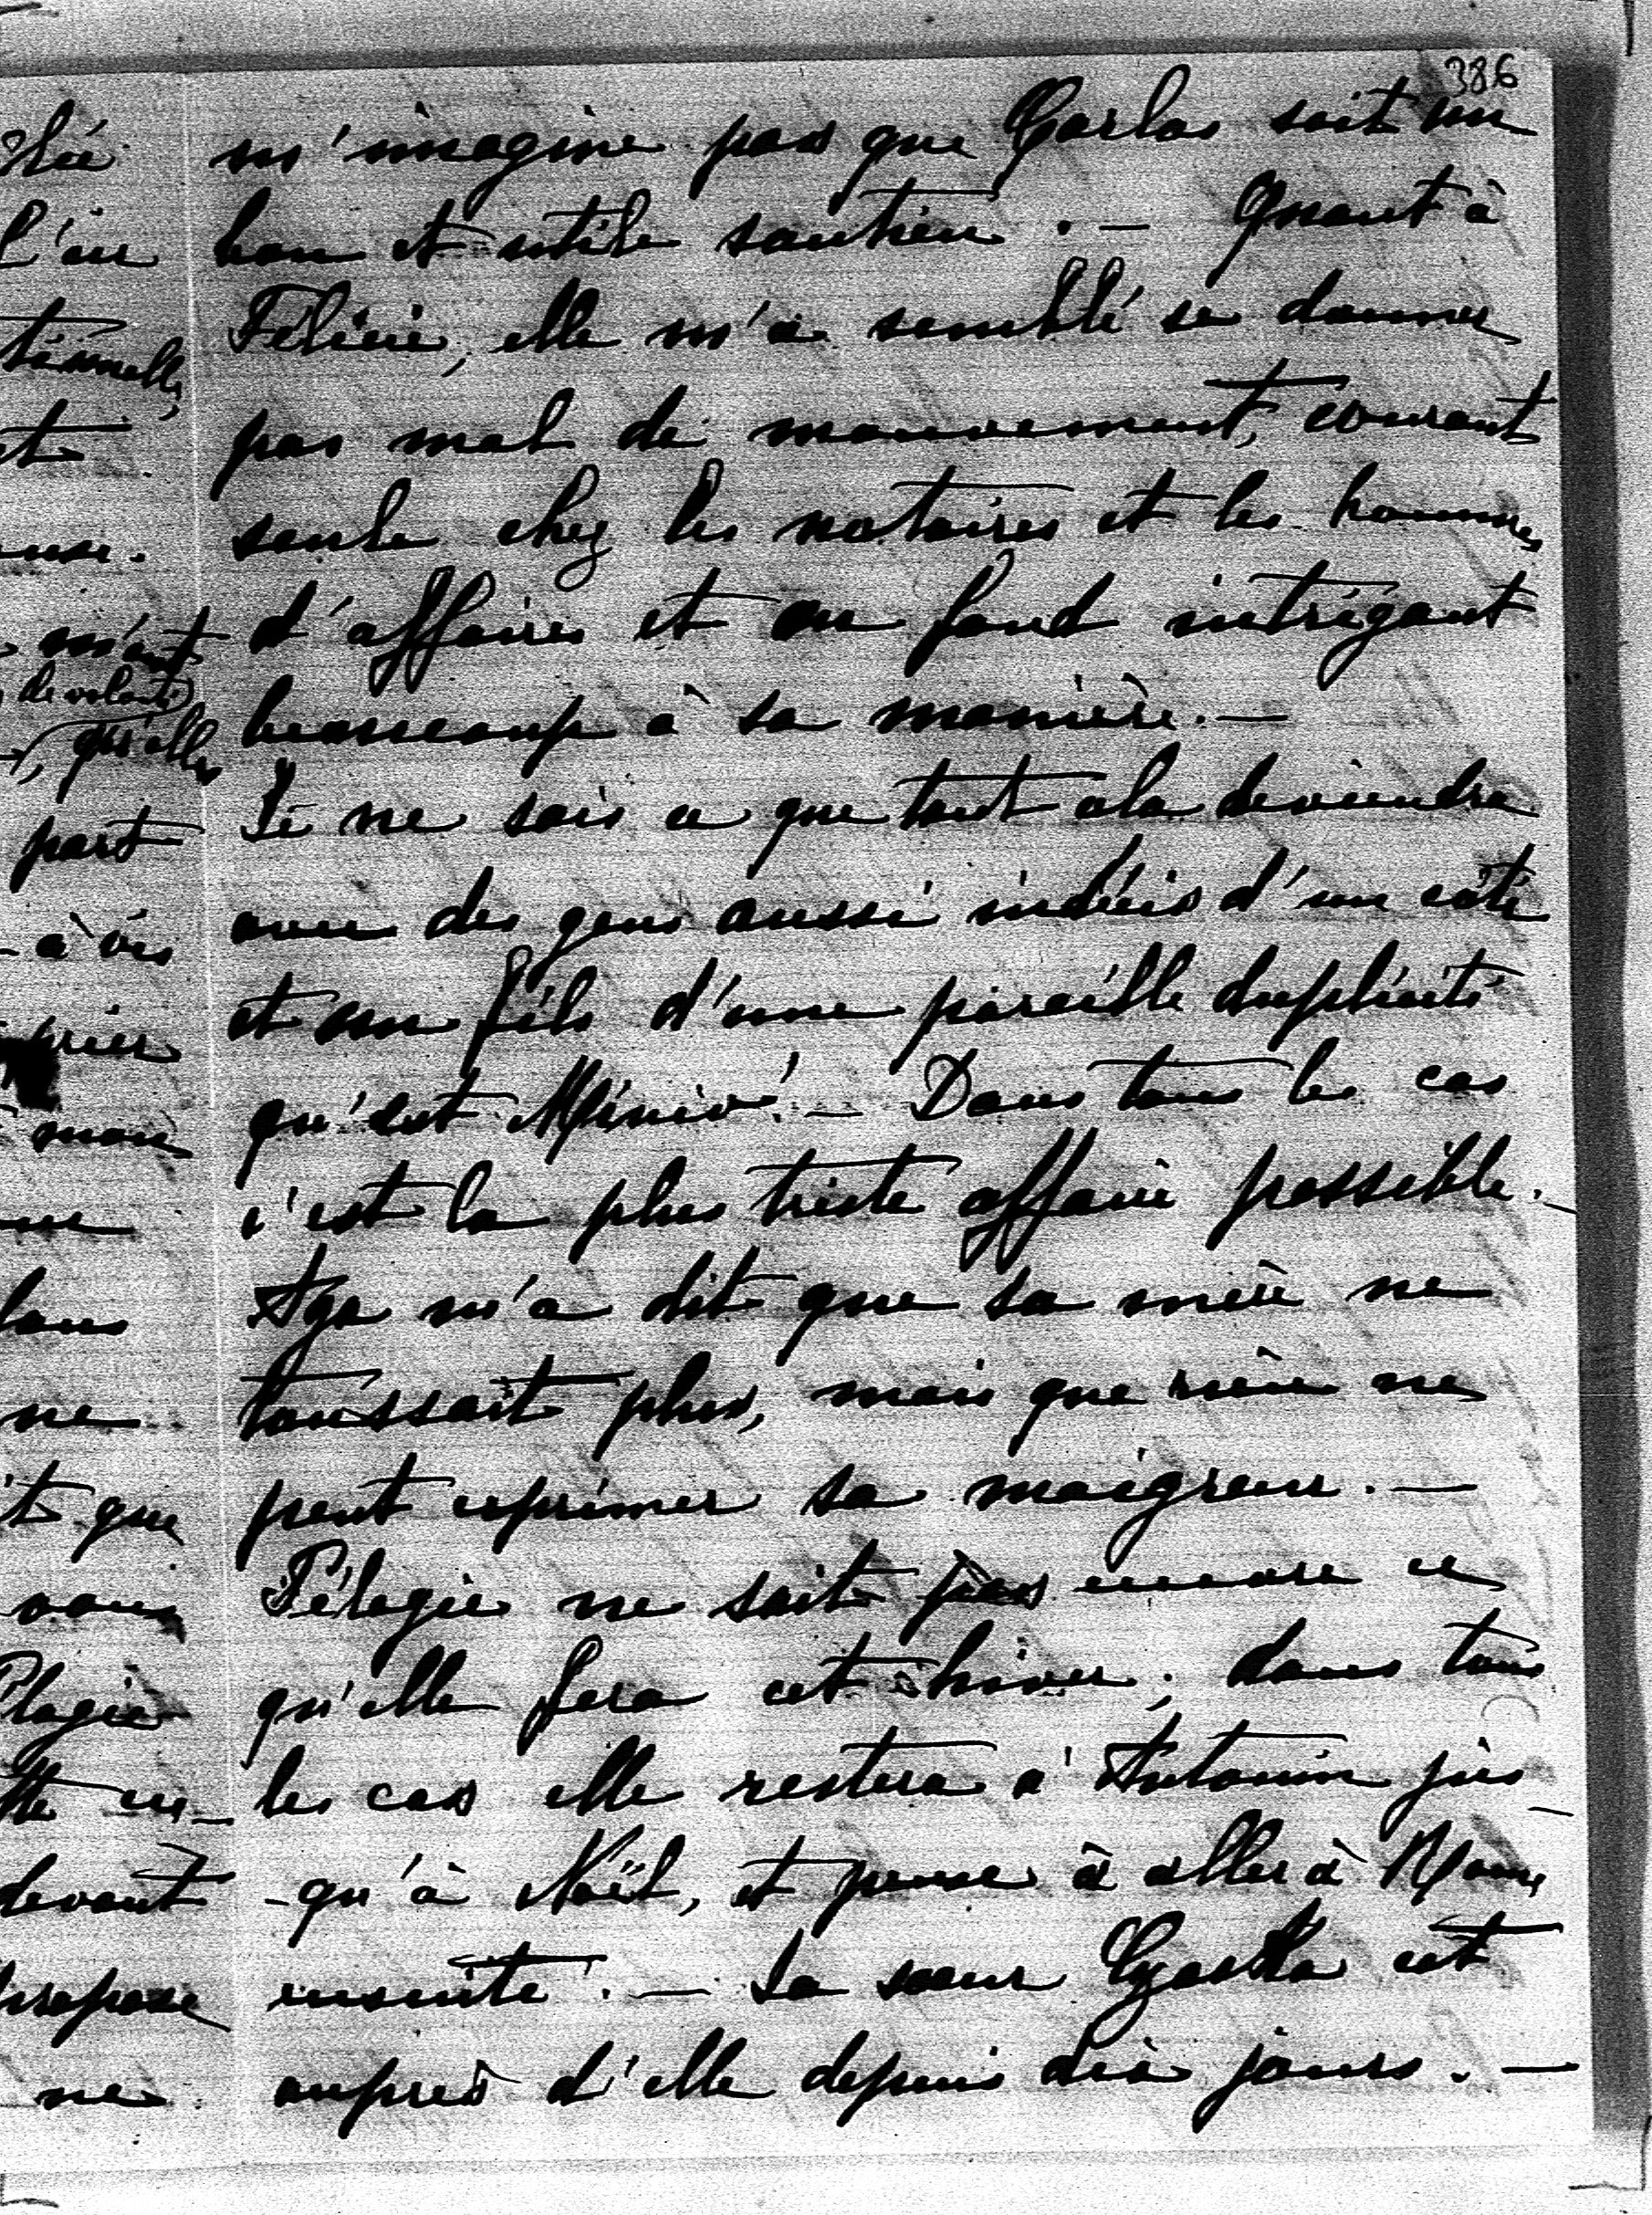 386
m'imagine pas que Carlos soit un
bon et utile soutien. — Quant à
Félicie, elle m'a semblé se donner
pas mal de mouvement, courant
seule chez les notaires et les hommes
d'affaires et au fond intrigant
beaucoup à sa manière. —
Je ne sais ce que tout cela deviendra
avec des gens aussi indécis d'un côté
et un fils d'une pareille duplicité
qu'est Minio! — Dans tous les cas
c'est la plus triste affaire possible. —
m'a dit que sa mère ne
toussait plus, mais que rien ne
peut exprimer sa maigreur. —
Pélagie ne sait pas encore ce
qu'elle fera cet hiver; dans tous
les cas elle restera à Antonin jus-
-qu'à Noël, et pense à aller à Rome
ensuite. — Sa sœur est
auprès d'elle depuis dix jours. —
l'en
m'ont
de volonté
, qu'elles
part
-à vis
prier
ne
t que
vous
devant
propose
ne